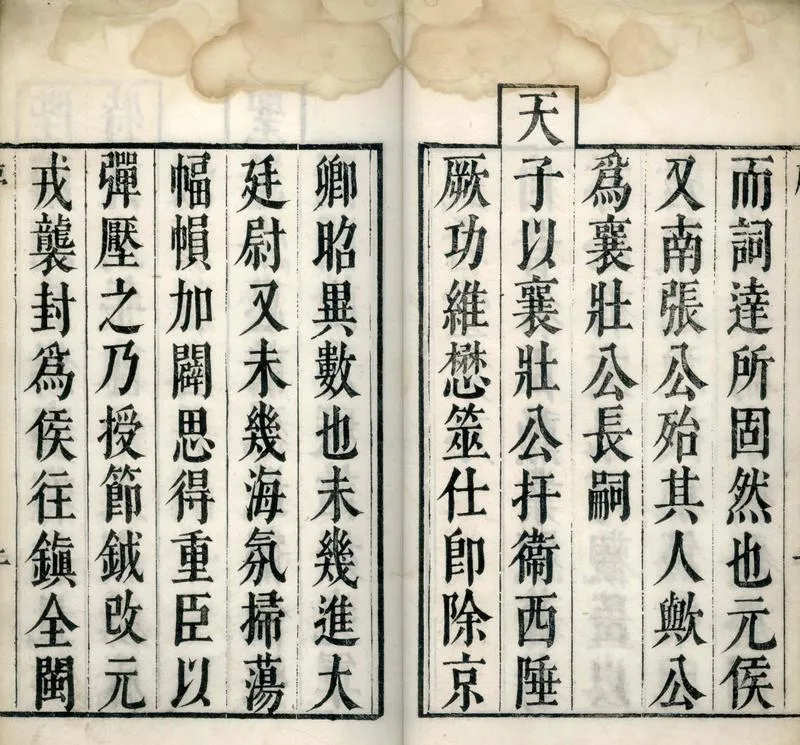 而詞達所固然也元侯
又南張公殆其人歟公
爲襄壯公長嗣
天子以襄壯公扞衞西陲
厥功維懋筮仕卽除京
卿昭異數也未幾進大
廷尉又未幾海氛掃蕩
幅幀加闢思得重臣以
彈壓之乃授節鉞改元
戎襲封爲侯往鎭全閩